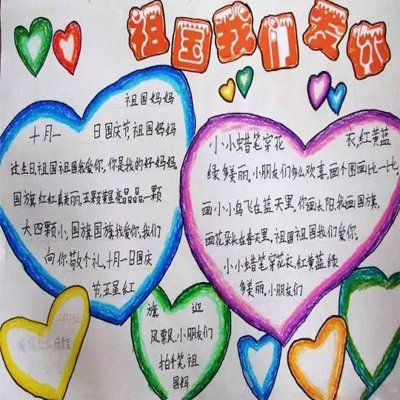 祖国我们爱你
祖国妈妈
十月一 日国庆节,祖国妈妈
过生日,祖国祖国我爱你,你是我的好妈妈,
国旗红红真美丽,五颗星星亮晶晶,一颗
大四颗小,国旗国旗我爱你,我们
向你敬个礼,十月一日国庆
节,五星红
小小蜡笔穿花 衣,红黄蓝
绿多美丽,小朋友们多么欢喜,画个图画比一比,
画小小鸟飞在蓝天里,你画太阳,我画国旗,
画花朵长在春天里,祖国祖国我们爱你,
小小蜡笔穿花衣,红黄蓝绿
多美丽,小朋友们
旗 迎
风飘,小朋友们
拍手笑,祖
国妈